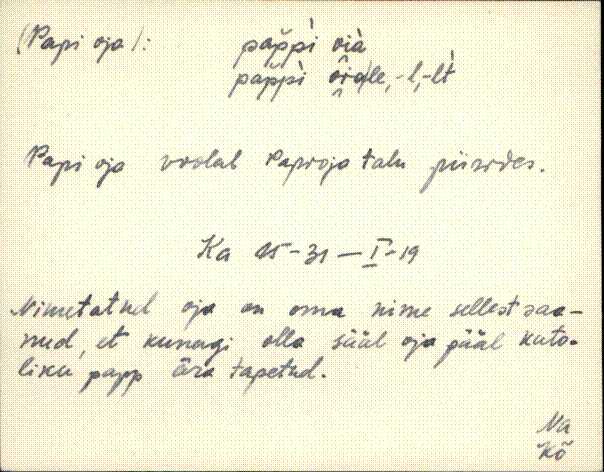 (Papi oja): pap̆pì oià
pap̆pì ôja|le, -l, -lt̀
Papi oja voolab Papioja talu piirides.
Ka 15-31-I-19
Nimetatud oja on oma nime sellest saa-
nud, et kunagi olla sääl oja pääl kato-
liku papp ära tapetud.
Na
Kõ